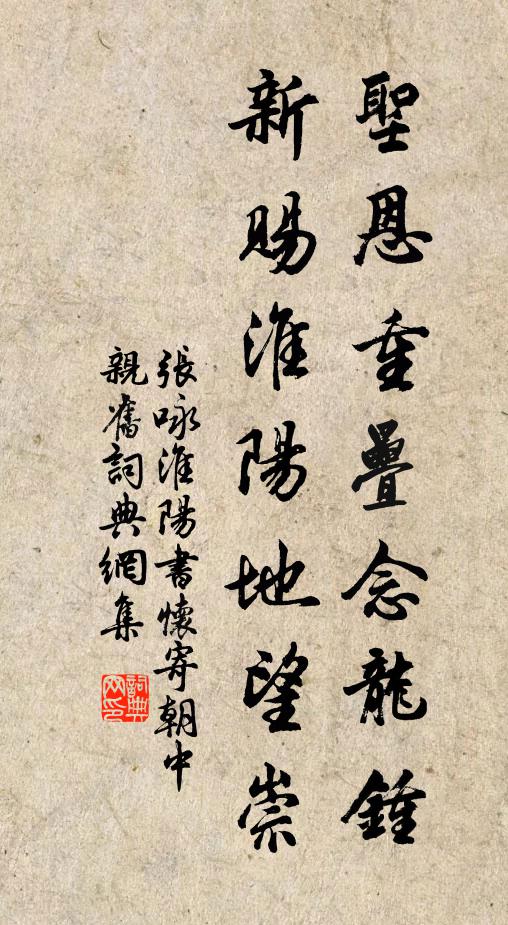 聖恩重疊念龍鍾
新賜淮陽地望崇
張咏淮陽書懷寄朝中
親舊詞典網集
詞典网印